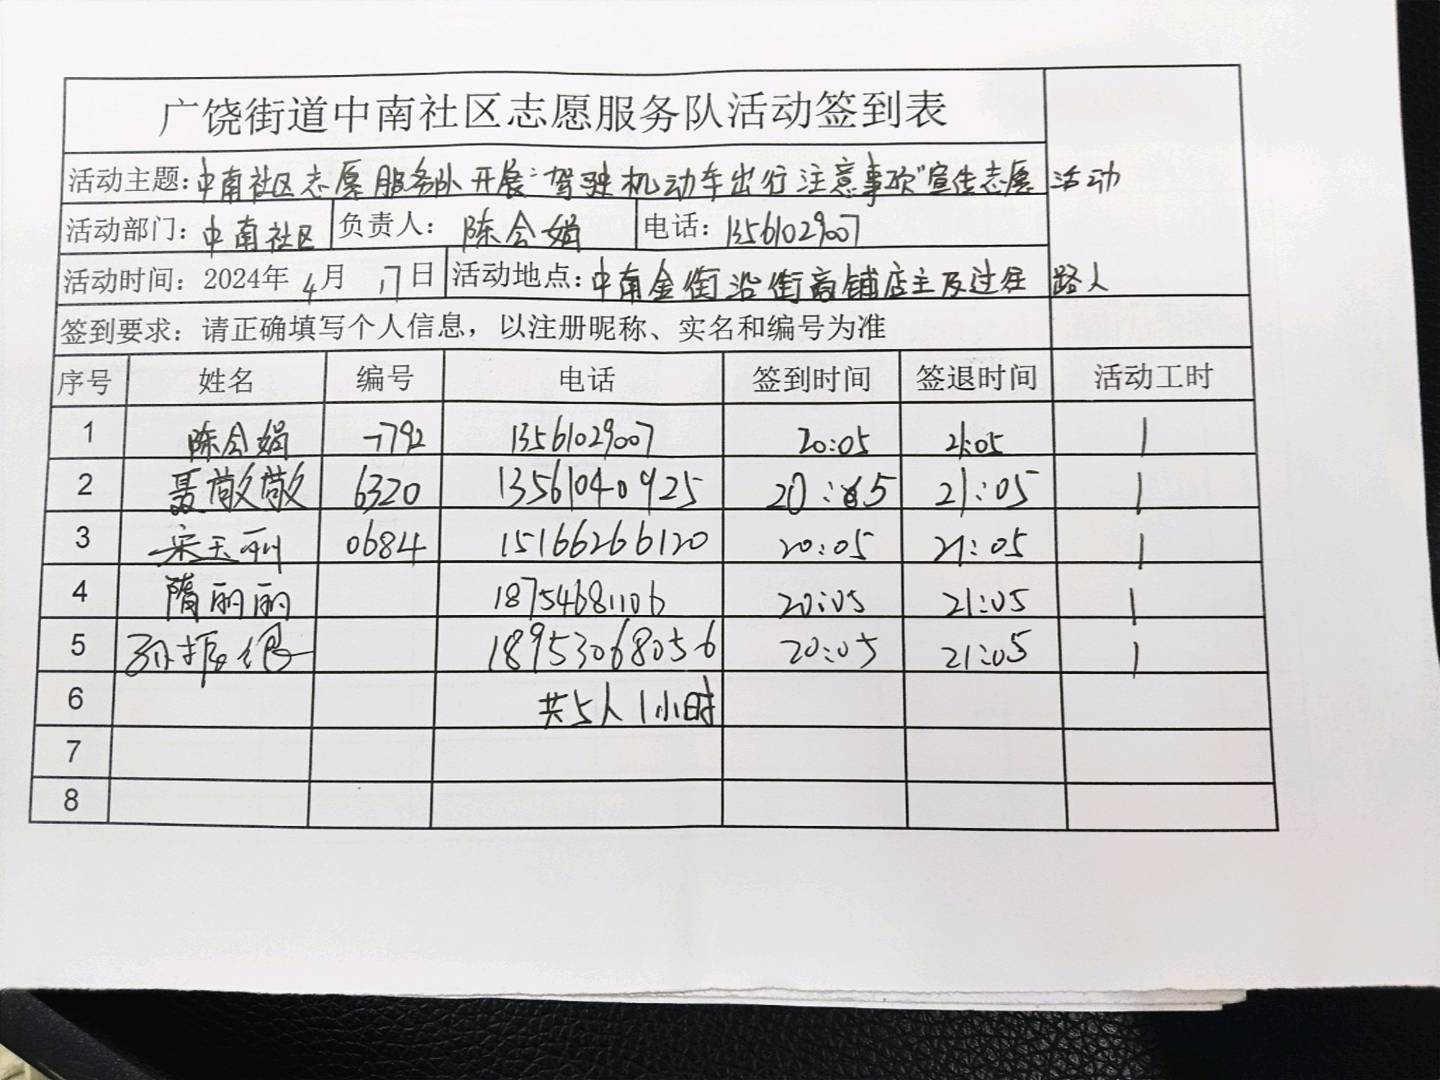 广饶街道中南社区志愿服务队活动签到表
活动主题:中南社区志愿服务队开展"驾驶机动车出行注意事项"宣传志愿活动
活动部门:中南社区 负责人: 陈会娟 电话:13561029007
活动时间: 2024年 4月 17日 活动地点:中南金街沿街商铺店主及过往路人
签到要求: 请正确填写个人信息, 以注册昵称、实名和编号为准
序号 姓名 编号 电话 签到时间 签退时间 活动工时
1 陈会娟 7792 13561029007 20:05 21:05 1
2 聂敬敬 6320 13561040925 20:05 21:05 1
3 宋玉 0684 15166266120 20:05 21:05 1
4 隋丽丽 18754681106 20:05 21:05 1
5 孙振 18953068056 20:05 21:05 1
6 共5人1小时
7
8